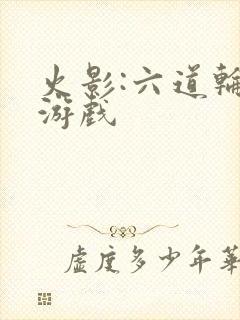 火影:六道輪
游戲
虛度多少年華